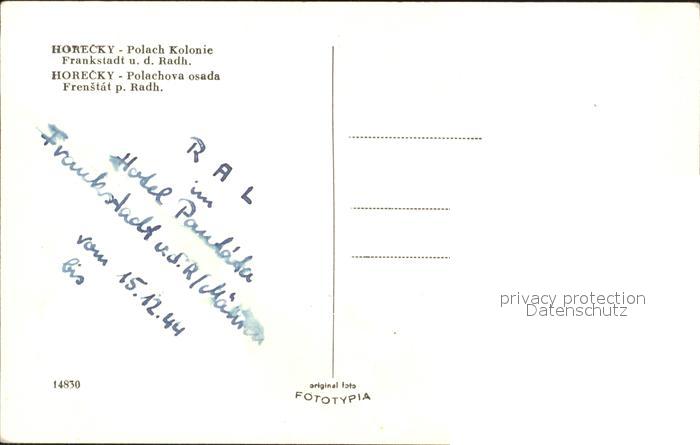 HOREČKY - Polach Kolonie
Frankstadt u. d. Radh.
HOREČKY - Polachova osada
Frenštát p. Radh.
R A L
im
Hotel
Frankstadt u. d. R/Mähren
vom 15.12.44
bis
14830
original foto
FOTOTYPIA
privacy protection
Datenschutz